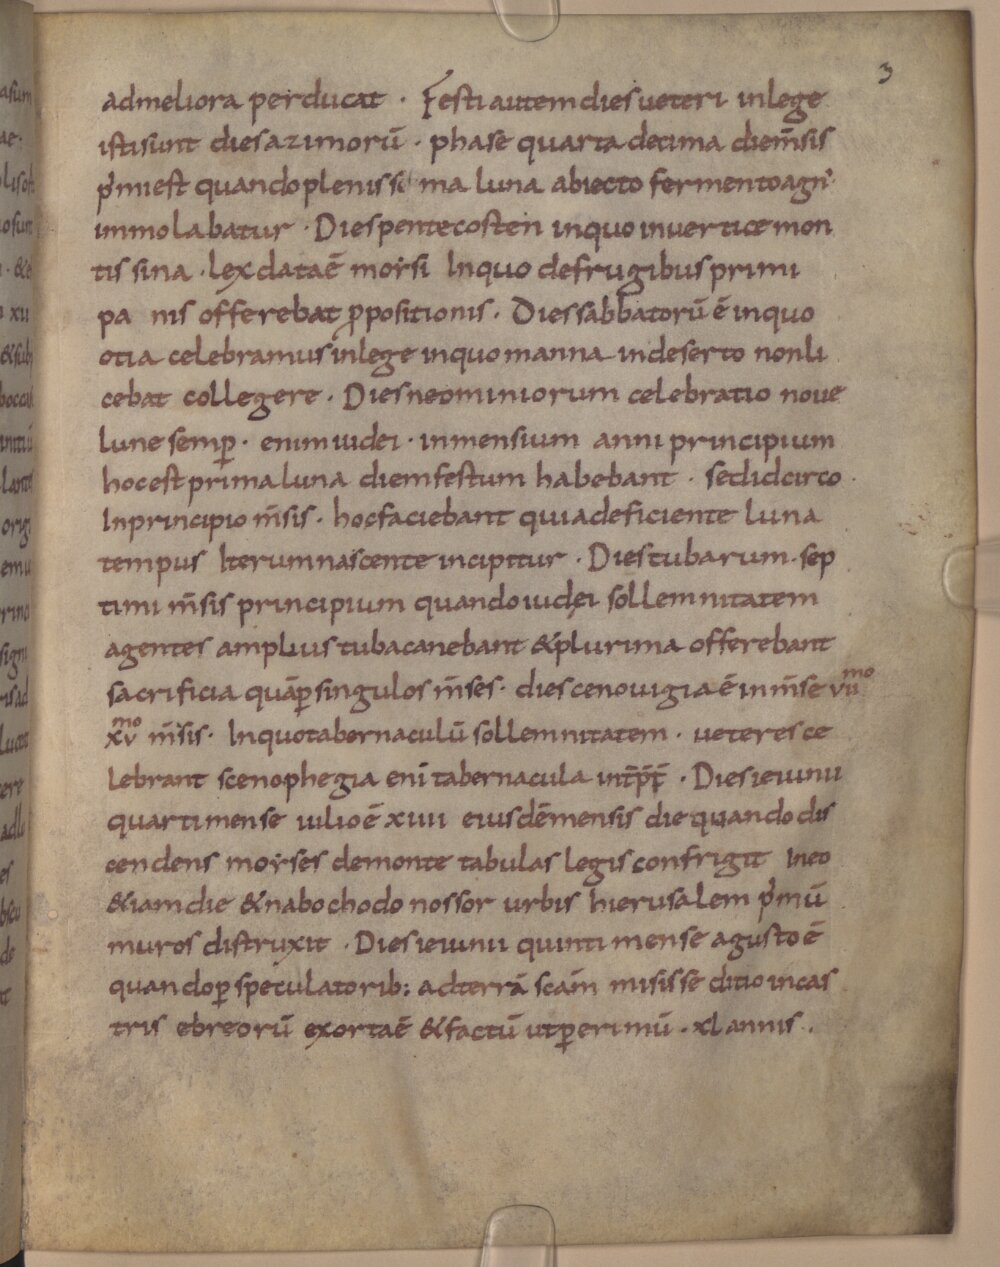 3
admeliora perducat · Festi autem dies ueteri inlege
isti sunt dies azimorū · phase quarta decima die m̄sis
p̓mi est quando plenissi ma luna abiecto fermento agn̄
immolabatur · Dies pentecosten in quo inuertice mon
tis sina · lex data ē moysi Inquo defrugibus primi
pa nis offerebat ꝓpositionis · Dies sabbatorū ē inquo
otia celebramus inlege inquo manna indeserto nonli
cebat collegere · Dies neominiorum celebratio noue
lune semꝑ · enim iudei · inmensium anni principium
hoc est prima luna diem festum habebant · sed idcirco
Inprincipio m̄sis · hoc faciebant quia deficiente luna
tempus Iterum nascente incipitur · Dies tubarum · sep
timi m̄sis principium quando iudei sollemnitatem
agentes amplius tuba canebant & plurima offerebant
sacrificia quā ꝑ singulos m̄ses · dies cenouigia ē in m̄se vii mo
xv mo m̄sis · Inquo tabernaculū sollemnitatem · ueteres ce
lebrant scenophegia enī tabernacula int̄p̄t̄ · Dies ieiunii
quarti mense iulio ē xiiii eiusdē mensis die quando dis
cendens moyses demonte tabulas legis confrigit Ineo
& iam die & nabochodonossor urbis hierusalem p̓mū
muros distruxit · Dies ieiunii quinti mense agusto ē
quando ꝑ speculatorib: adterrā scām misis seditio incas
tris ebreorū exorta ē & factū ut ꝑ erimū · xl annis ·